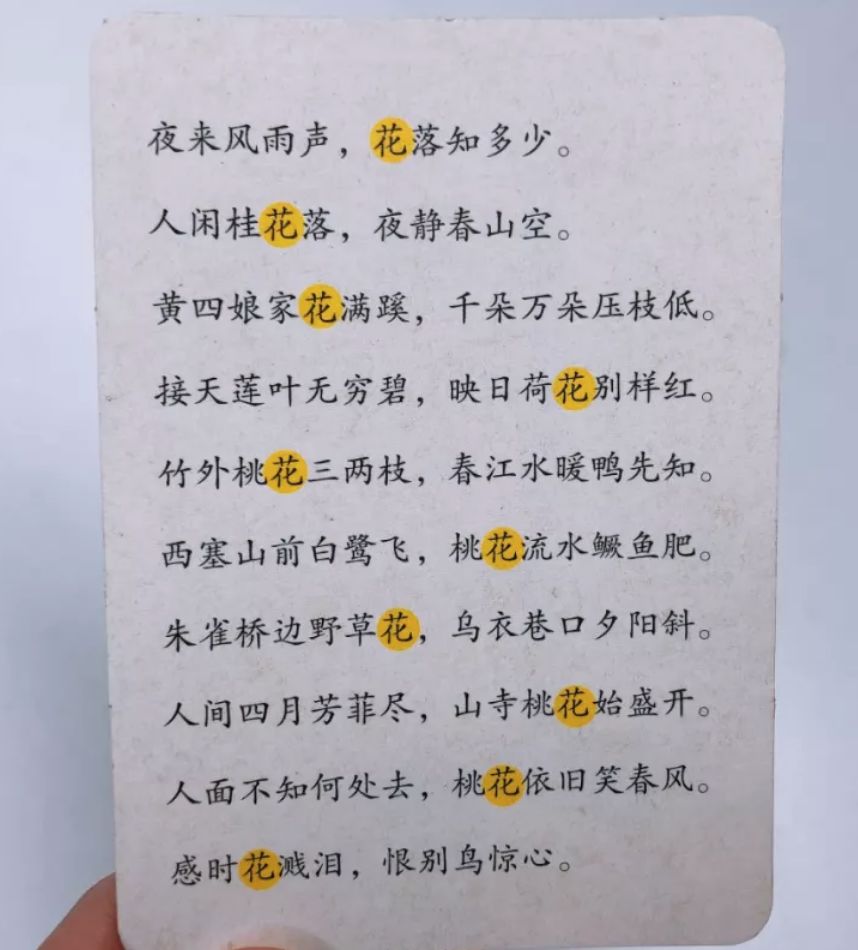 夜来风雨声，花落知多少。
人闲桂花落，夜静春山空。
黄四娘家花满蹊，千朵万朵压枝低。
接天莲叶无穷碧，映日荷花别样红。
竹外桃花三两枝，春江水暖鸭先知。
西塞山前白鹭飞，桃花流水鳜鱼肥。
朱雀桥边野草花，乌衣巷口夕阳斜。
人间四月芳菲尽，山寺桃花始盛开。
人面不知何处去，桃花依旧笑春风。
感时花溅泪，恨别鸟惊心。